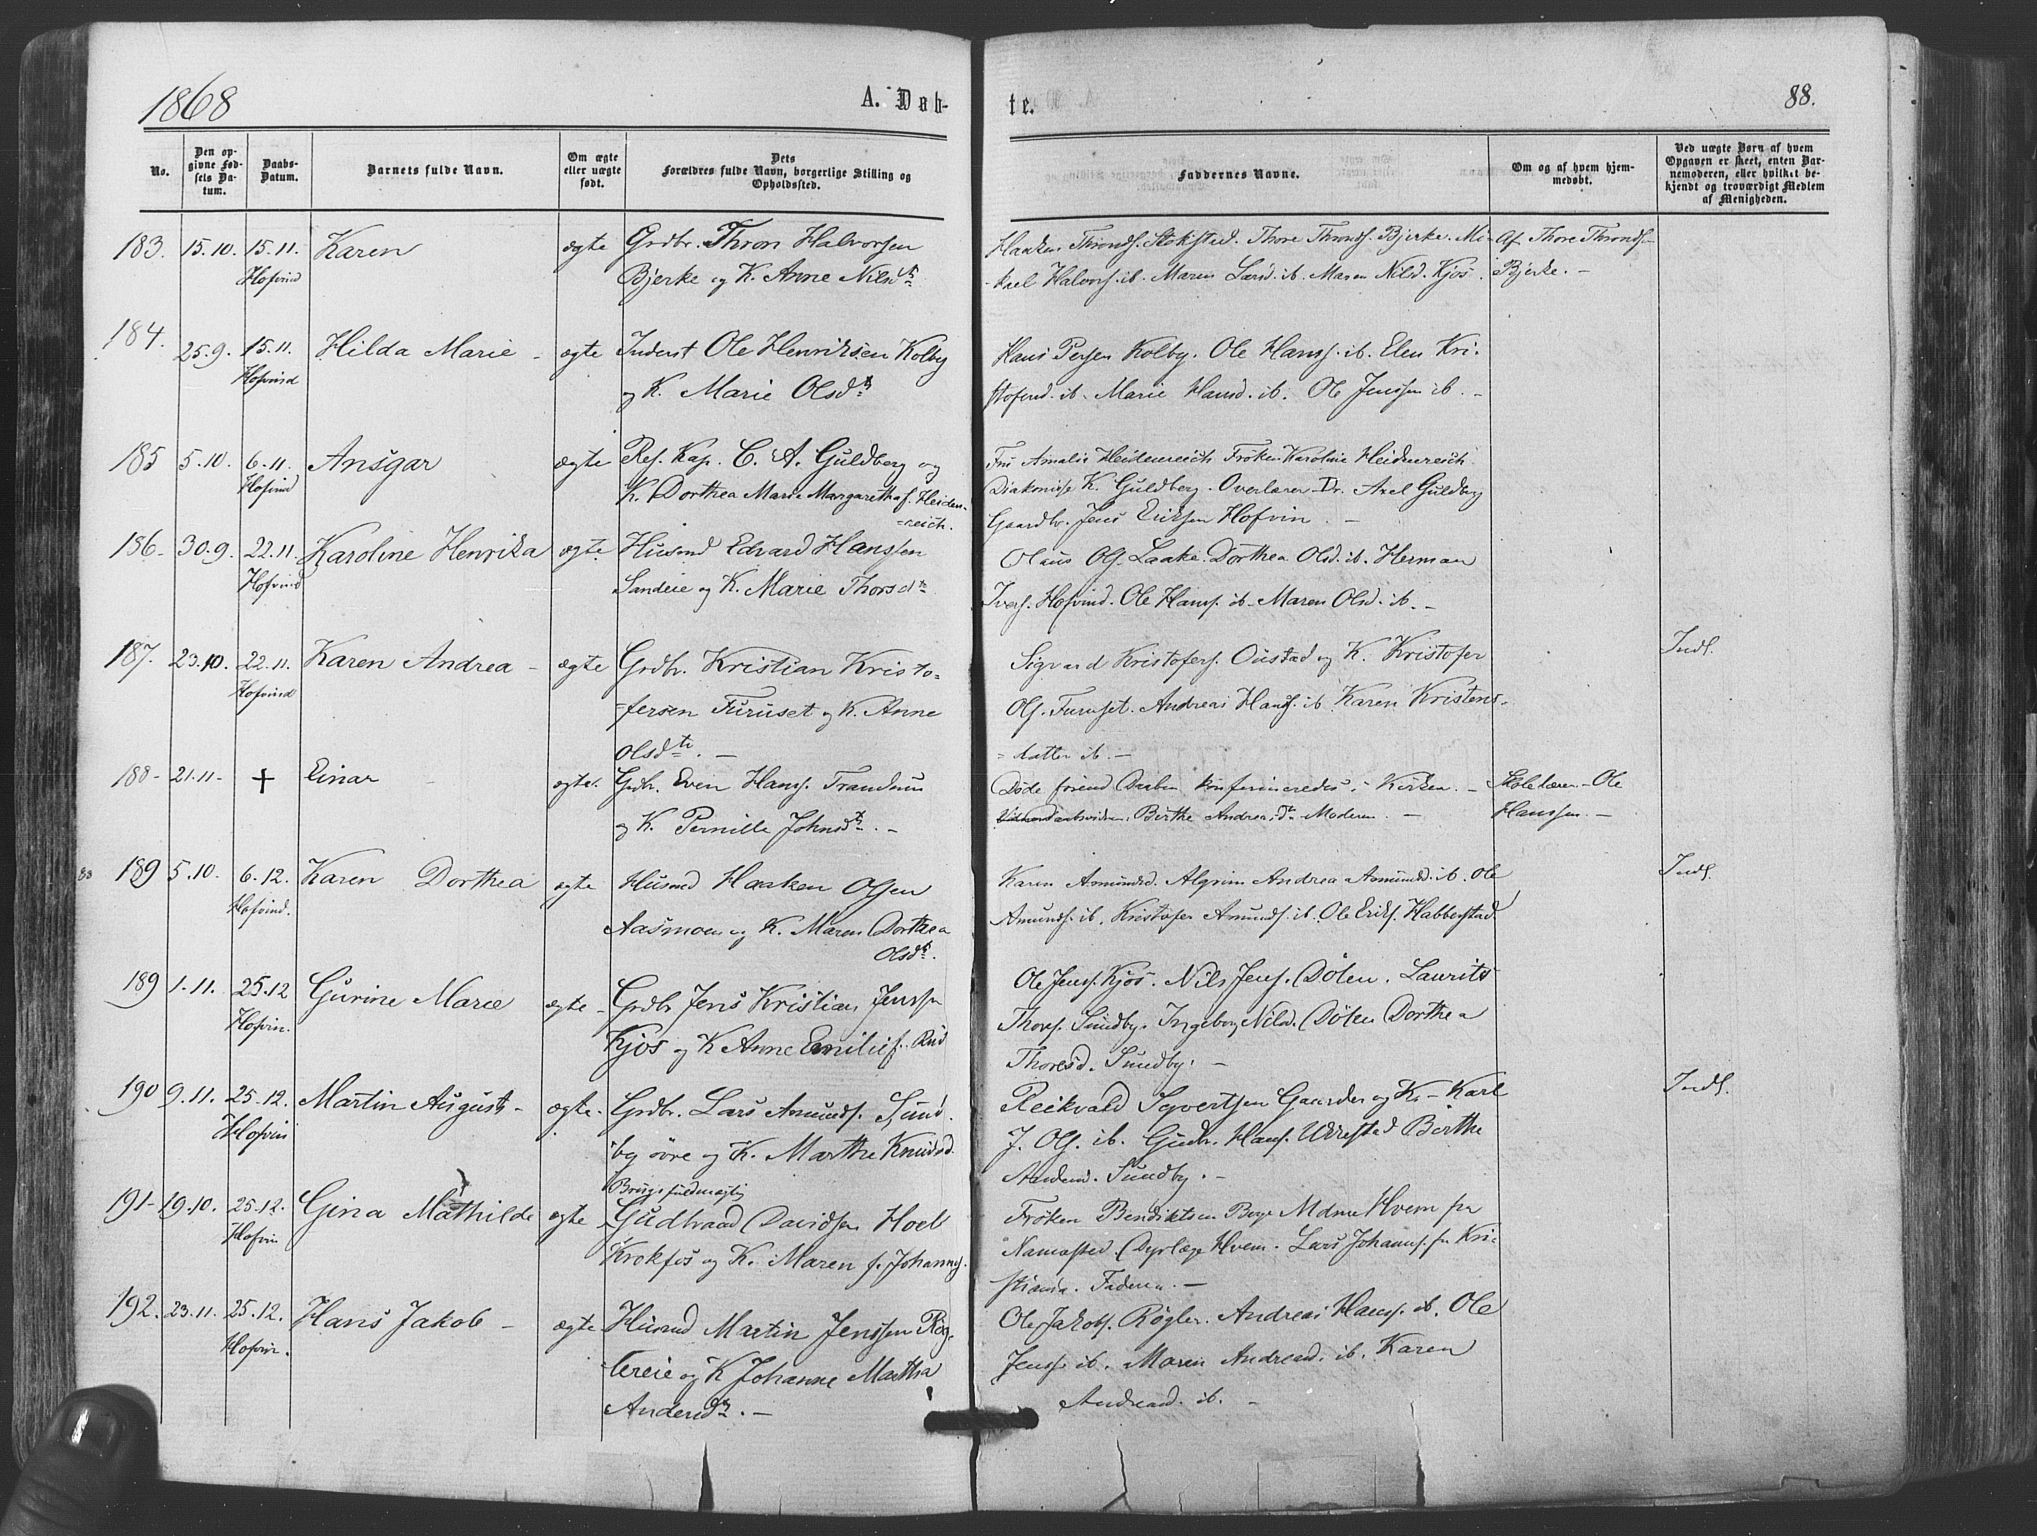 1868
A. Døb-
te.
88.
No.
Den op-
givne Fød-
sels Da-
tum.
Daabs-
Datum.
Barnets fulde Navn.
Om ægte
eller uægte
født.
Dets
Forældres fulde Navn, borgerlige Stilling og
Opholdssted.
Faddernes Navne.
Om og af hvem hjem-
medøbt.
Ved uægte Børn af hvem
Opgaven er skeet, enten Bar-
nemoderen, eller hvilket be-
kjendt og troværdigt Medlem
af Menigheden.
183. 15.10. 15.11. Karen ægte Grdbr. Thron Halvorsen
Hofvind Bjerke og K. Anne Nilsdtr
Haaken Thronds. Stokstad. Thore Thronds. Bjerke. Mi-
kael Halvors. ib. Maren Larsd. ib. Maren Nilsd. Kjos.
Af Thore Thronds-
Bjerke. -
184. 25.9. 15.11. Hilda Marie - ægte Inderst Ole Henriksen Kolby
Hofvind og K. Marie Olsdtr
Hans Persen Kolby. Ole Hanss. ib. Elen Kri-
stofersd. ib. Marie Hansd. ib. Ole Jenssen ib. -
185 5.10. 6.11. Ansgar ægte Res. Kap. C. A. Guldberg og
Hofvind K. Dorthea Marie Margaretha f. Heiden-
=reich.
Fru Amalie Heidenreich Frøken Karoline Heidenreich
Diakonisse K. Guldberg. Overlærer Dr. Axel Guldberg
Gaardbr. Jens Eriksen Hofvin. -
186- 30.9. 22.11. Karoline Henrika ægte Husmd Edvard Hanssen
Hofvind Sandeie og K. Marie Thorsdtr
Olaus Ols. Laake. Dorthea Olsd. ib. Herman
Ivers. Hofvind. Ole Hanss. ib. Maren Olsd. ib. -
187. 23.10. 22.11. Karen Andrea - ægte Grdbr. Kristian Kristo=
Hofvind =fersen Furuset og K. Anne
Olsdtr. -
Sigvard Kristofers. Oustad og K. Kristofer
Ols. Furuset. Andreas Hanss. ib. Karen Kristens-
=datter ib. -
Indl.
188- 21.11- + Einar ægte. Grdbr. Even Hanss. Trandum
og K. Pernille Johnsdtr. -
Døde førend Daaben konfirmeredes i Kirken. -
Berthe Andrea, Moderen. -
Skolelærer Ole
Hanssen. -
189 5.10. 6.12. Karen Dorthea ægte Husmd Haaken Olsen
Hofvind. Aasmoen og K. Maren Dorthea
Olsdtr.
Karen Amundsd. Algrim Andrea Amundsd. ib. Ole
Amunds. ib. Kristofer Amunds. ib. Ole Eriks. Habberstad.
Indl.
189 1.11. 25.12 Gurine Marie ægte - Grdbr Jens Kristian Jenssen
Hofvin. Kjos og K Anne Emilie f. Rud
Ole Jenss. Kjos. Nils Jens. Dølen. Laurits
Thores. Sundby. Ingeborg Nilsd. Dølen Dorthea
Thoresd. Sundby. -
190 9.11. 25.12. Martin August - ægte. Grdbr. Lars Amunds. Sund-
Hofvin by øvre og K. Marthe Knudsd.
Reikvald Syvertsen Gaarder og K. - Karl
J. Ols. ib. Gudbr. Hans. Ukkestad Berthe
Andersd. Sundby. -
Indl.
191- 19.10. 25.12. Gina Mathilde ægte Brugsfuldmægtig
Hofvin Gudbrand Davidsen Hoel
Krokfos og K. Maren f. Johannes.
Frøken Bendiktsen Berge Mdme Hvem fra
Namastad. Dyrlæge Hvem. Lars Johanns. fra Kri-
stiania. Faderen. -
192. 23.11. 25.12. Hans Jakob - ægte Husmd Martin Jenssen Røg-
Hofvin. lereie og K Johanne Marthea
Andersdtr. -
Ole Jakobs. Røgler. Andreas Hanss. ib. Ole
Jenss. ib. Maren Andreasd. ib. Karen
Andreasd. ib. -